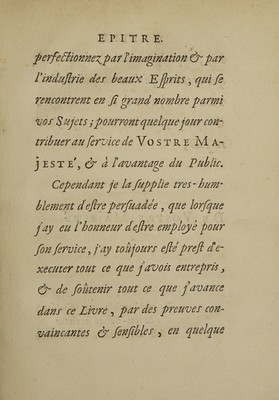 EPITRE.
perfectionnez par l'imagination & par
l'industrie des beaux Esprits, qui se
rencontrent en si grand nombre parmi
vos Sujets; pourront quelque jour con-
tribuer au service de VOSTRE MA-
JESTE', & à l'avantage du Public.
Cependant je la supplie tres-hum-
blement d'estre persuadée, que lorsque
j'ay eu l'honneur d'estre employé pour
son service, j'ay toûjours esté prest d'e-
xecuter tout ce que j'avois entrepris,
& de soûtenir tout ce que j'avance
dans ce Livre, par des preuves con-
vaincantes & sensibles, en quelque